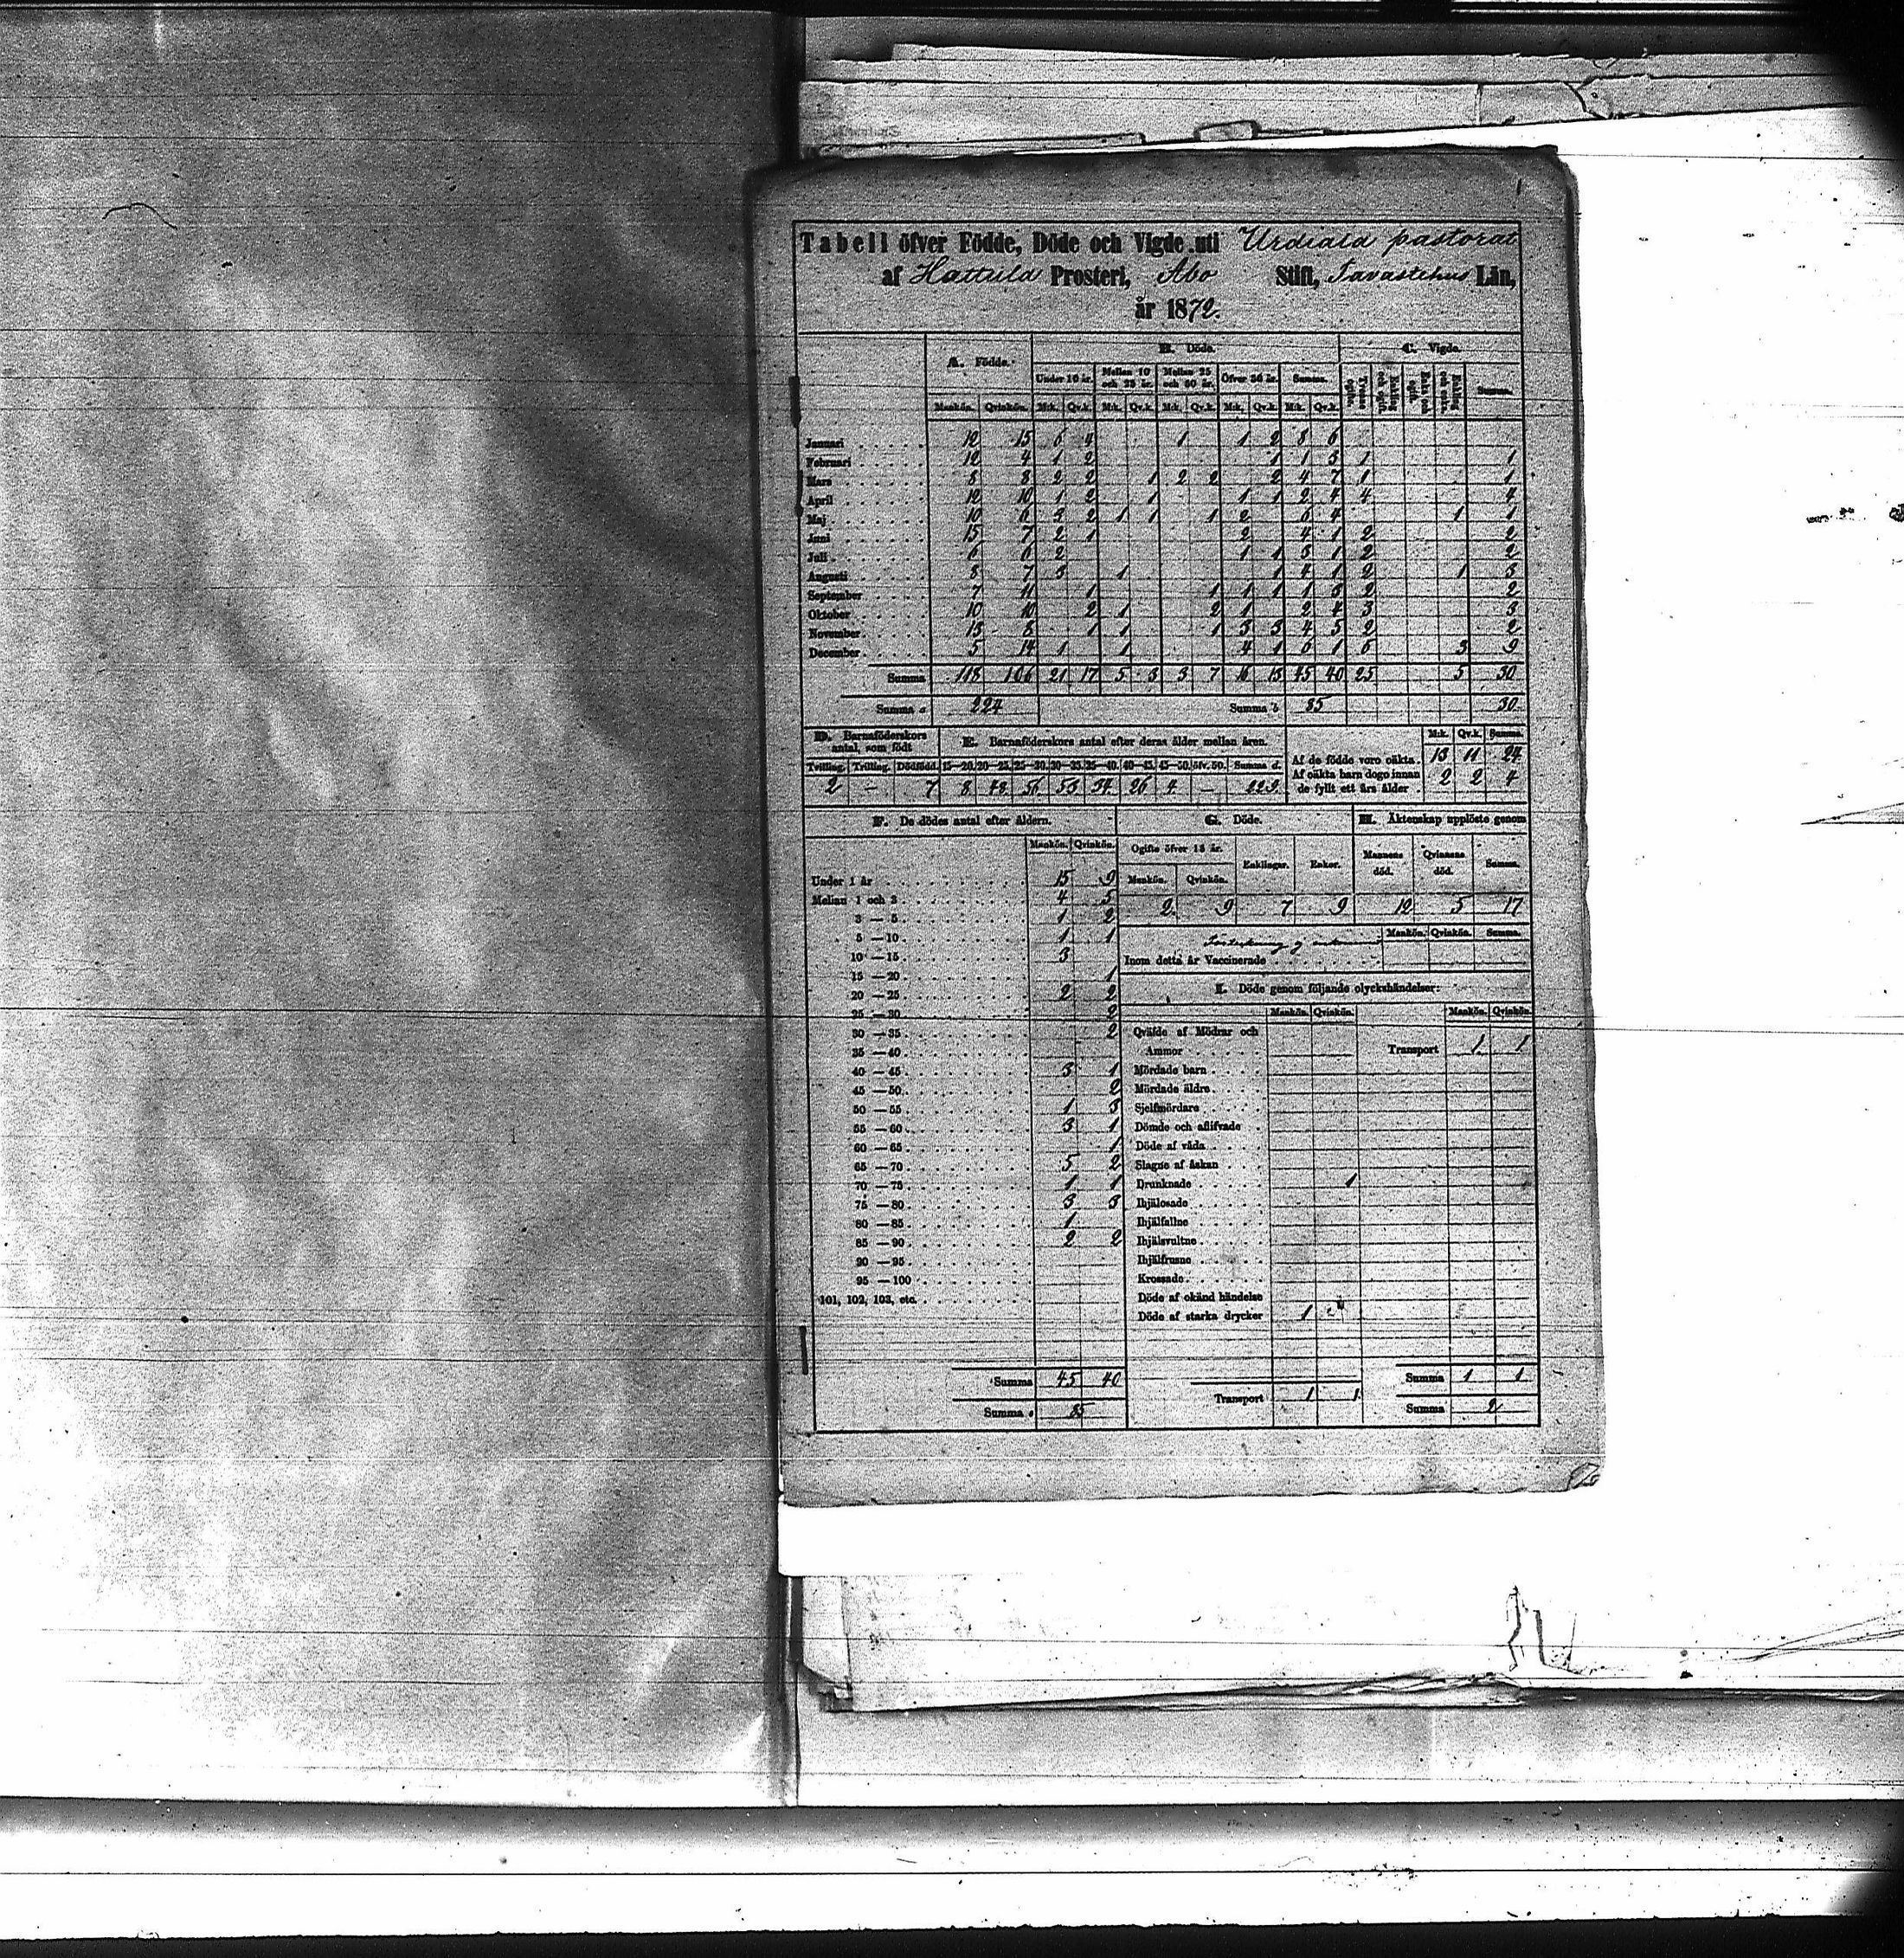 1
Tabell öfver Födde, Döde och Vigde uti Urdiala pastorat
af Hattula Prosteri, Åbo Stift, Tavastehus Län,
år 1872.
A. Födde. B. Döde. C. Vigde.
Under 10 år. Mellan 10 och 25 år. Mellan 25 och 50 år. Öfver 50 år. Summa. Summa.
Mankön. Qvinkön. M.k. Qv.k. M.k. Qv.k. M.k. Qv.k. M.k. Qv.k. M.k. Qv.k.
Januari 12 15 6 4 1 1 2 8 6
Februari 12 4 1 2 1 1 3 1 1
Mars 8 8 2 2 1 2 2 2 4 7 1 1
April 12 10 1 2 1 1 1 2 4 4 4
Maj 10 6 3 2 1 1 1 2 6 4 1 1
Juni 15 7 2 1 2 4 1 2 2
Juli 6 6 2 1 1 3 1 2 2
Augusti 8 7 3 1 1 4 1 2 1 3
September 7 11 1 1 1 1 1 3 2 2
Oktober 10 10 2 1 2 1 2 4 3 3
November 13 8 1 1 1 3 3 4 5 2 2
December 5 14 1 1 4 1 6 1 6 3 9
Summa 118 106 21 17 5 3 3 7 16 13 45 40 25 5 30
Summa a 224 Summa b 85 30
D. Barnaföderskors antal, som födt E. Barnaföderskors antal efter deras ålder mellan åren. M.k. Qv.k. Summa.
Tvilling. Trilling. Dödfödd. 15—20. 20—25. 25—30. 30—35. 35—40. 40—45. 45—50. öfv. 50. Summa d.
Af de födde voro oäkta 13 11 24
Af oäkta barn dogo innan de fyllt ett års ålder 2 2 4
2 — 7 8 48 56 53 34 26 4 —
F. De dödes antal efter åldern. G. Döde. H. Äktenskap upplöste genom
Mankön. Qvinkön. Ogifte öfver 15 år. Enklingar. Enkor. Mannens död. Qvinnans död. Summa.
Mankön. Qvinkön.
2 9 7 9 12 5 17
Under 1 år 15 9
Mellan 1 och 3 4 5
3 — 5 1 2
5 — 10 1 1
10 — 15 3
15 — 20 1
20 — 25 2 2
25 — 30 2
30 — 35 2
35 — 40
40 — 45 3 1
45 — 50 2
50 — 55 1 3
55 — 60 3 1
60 — 65 1
65 — 70 5 2
70 — 75 1 1
75 — 80 3 3
80 — 85 1
85 — 90 2 2
90 — 95
95 — 100
101, 102, 103, etc.
Summa 45 40
Summa 85
Mankön. Qvinkön. Summa.
Inom detta år Vaccinerade
I. Döde genom följande olyckshändelser:
Mankön. Qvinkön. Mankön. Qvinkön.
Qväfde af Mödrar och
Ammor Transport 1 1
Mördade barn
Mördade äldre
Sjelfmördare
Dömde och aflifvade
Döde af våda
Slagne af åskan
Drunknade 1
Ihjälosade
Ihjälfallne
Ihjälsvultne
Ihjälfrusne
Krossade
Döde af okänd händelse
Döde af starka drycker 1
Transport 1 1
Summa 1 1
Summa 2